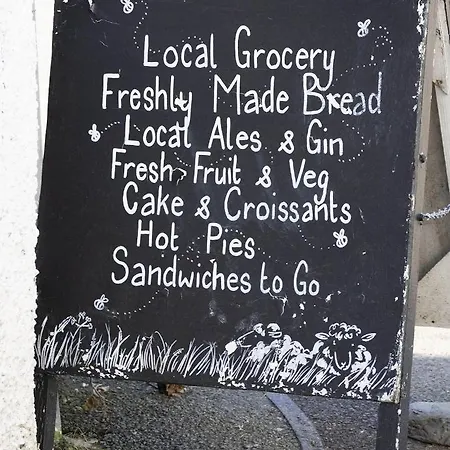 Local Grocery
Freshly Made Bread
Local Ales & Gin
Fresh Fruit & Veg
Cake & Croissants
Hot Pies
Sandwiches to Go